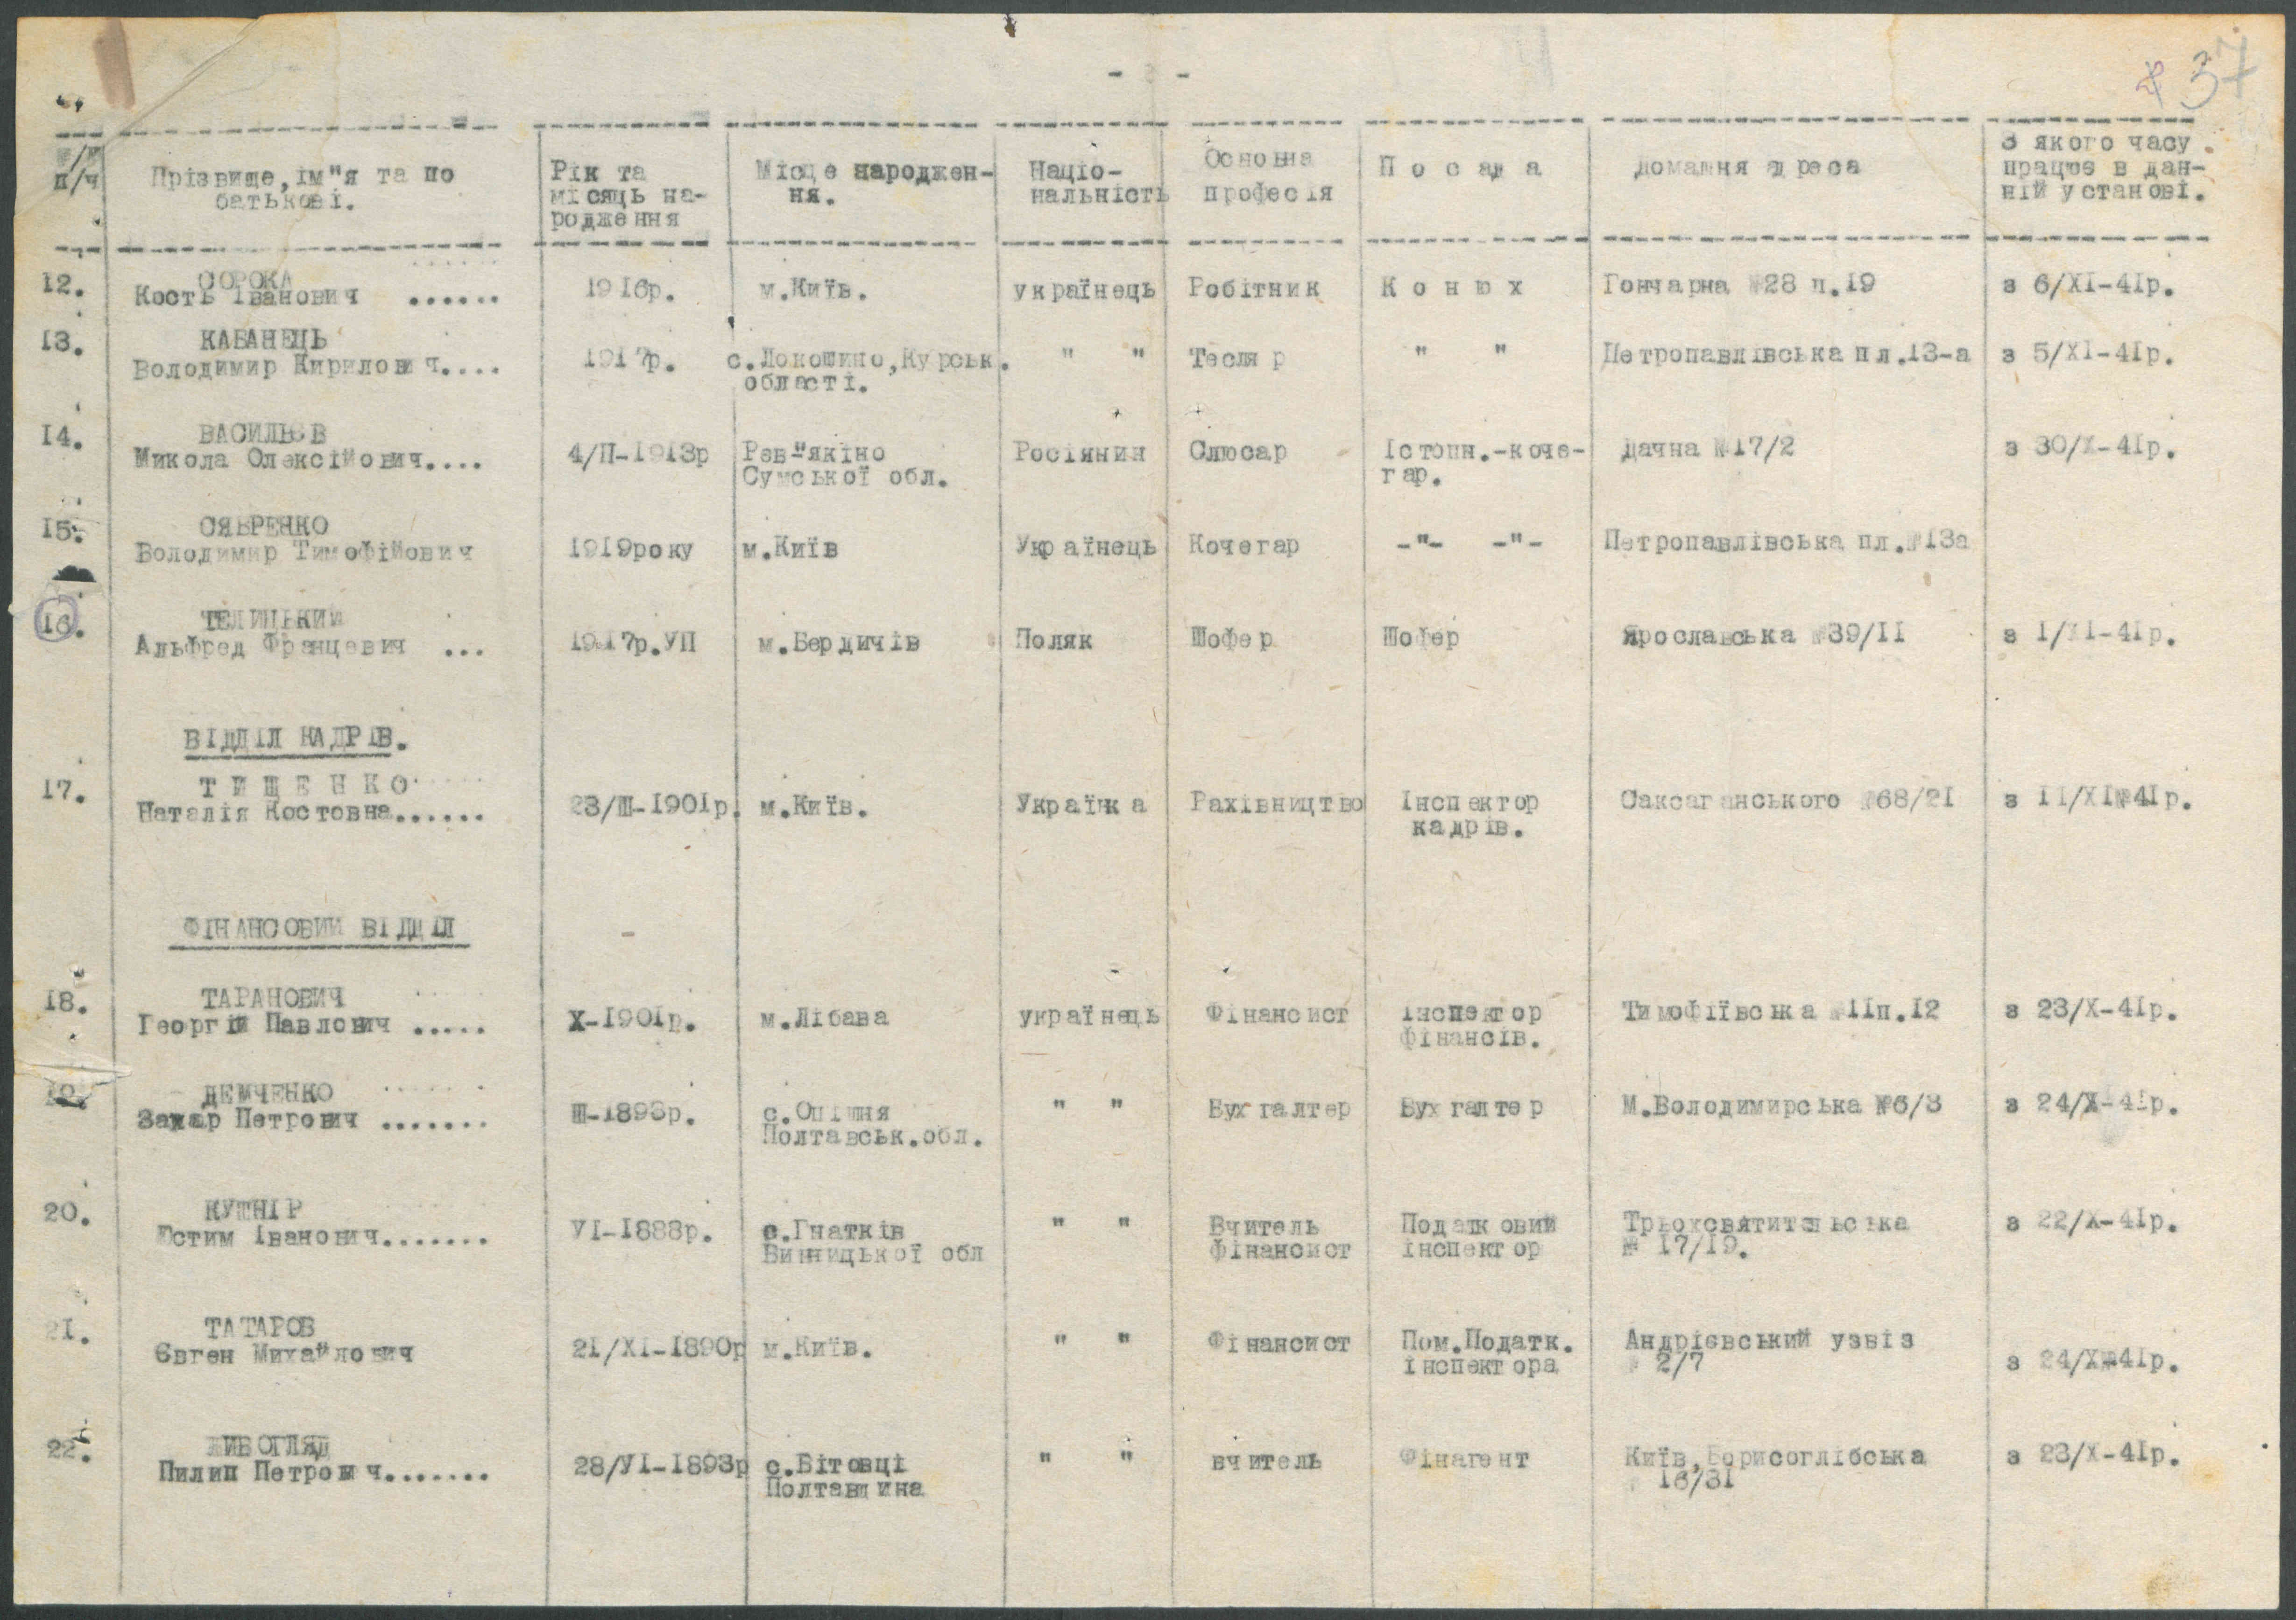 - 2 -
37
п/ч Прізвище,ім"я та по Рік та Місце народжен- Націо- Основна П о с а д а Домашня адреса З якого часу
батькові. місяць на- ня. нальність професія працює в дан-
родження ній установі.
12. СОРОКА
Кость Іванович ...... 1916р. м.Київ. українець Робітник К о н ю х Гончарна №28 п.19 з 6/XI-41р.
13. КАБАНЕЦЬ
Володимир Кирилович.... 1917р. с.Локошино,Курськ. " " Тесляр " " Петропавлівська пл.13-а з 5/XI-41р.
області.
14. ВАСИЛЬЄВ
Микола Олексійович.... 4/П-1913р Рев"якіно Росіянин Слюсар Істопн.-коче- Дачна №17/2 з 30/X-41р.
Сумської обл. гар.
15. СЯБРЕНКО
Володимир Тимофійович 1919року м.Київ Українець Кочегар -"- -"- Петропавлівська пл.№13а
16. ТЕЛИЦЬКИЙ
Альфред Францевич ... 1917р.УП м.Бердичів Поляк Шофер Шофер Ярославська №39/11 з 1/XI-41р.
ВІДДІЛ КАДРІВ.
17. Т И Щ Е Н К О
Наталія Костовна...... 23/Ш-1901р. м.Київ. Українка Рахівництво Інспектор Саксаганського №68/21 з 11/XI№41р.
кадрів.
ФІНАНСОВИЙ ВІДДІЛ
18. ТАРАНОВИЧ
Георгій Павлович ..... X-1901р. м.Лібава українець Фінансист Інспектор Тимофіївська №11п.12 з 23/X-41р.
фінансів.
19. ДЕМЧЕНКО
Захар Петрович ....... Ш-1893р. с.Опішня " " Бухгалтер Бухгалтер М.Володимирська №6/3 з 24/X-41р.
Полтавськ.обл.
20. КУШНІР
Юстим Іванович....... УІ-1888р. с.Гнатків " " Вчитель Податковий Трьохсвятительська з 22/X-41р.
Винницької обл фінансист інспектор № 17/19.
21. ТАТАРОВ
Євген Михайлович 21/XI-1890р м.Київ. " " Фінансист Пом.Податк. Андрієвський узвіз
інспектора № 2/7 з 24/X№41р.
22. ЖИВОГЛЯД
Пилип Петрович....... 28/УІ-1893р с.Вітовці " " вчитель Фінагент Київ,Борисоглібська з 23/X-41р.
Полтавщина № 16/31